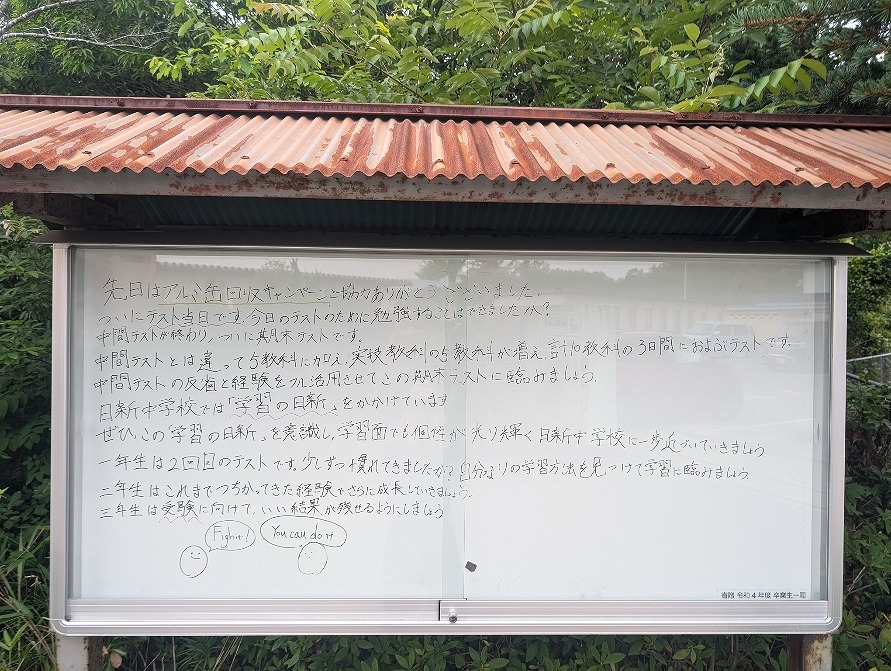 先日はアルミ缶回収キャンペーンご協力ありがとうございました。
ついにテスト当日です。今日のテストのために勉強することはできましたか?
中間テストが終わり、ついに期末テストです。
中間テストとは違って5教科に加え、実技教科の5教科が増え、計10教科の3日間におよぶテストです。
中間テストの反省と経験をフル活用させてこの期末テストに臨みましょう。
日新中学校では「学習の日新」をかかげています
ぜひ、この「学習の日新」を意識し、学習面でも個性が光り輝く日新中学校に一歩近づいていきましょう
一年生は2回目のテストです。少しずつ慣れてきましたか?自分なりの学習方法を見つけて学習に臨みましょう
二年生はこれまでつちかってきた経験でさらに成長していきましょう。
三年生は受験に向けて、いい結果が残せるようにしましょう
Fight! You can do it
寄贈 令和4年度 卒業生一同